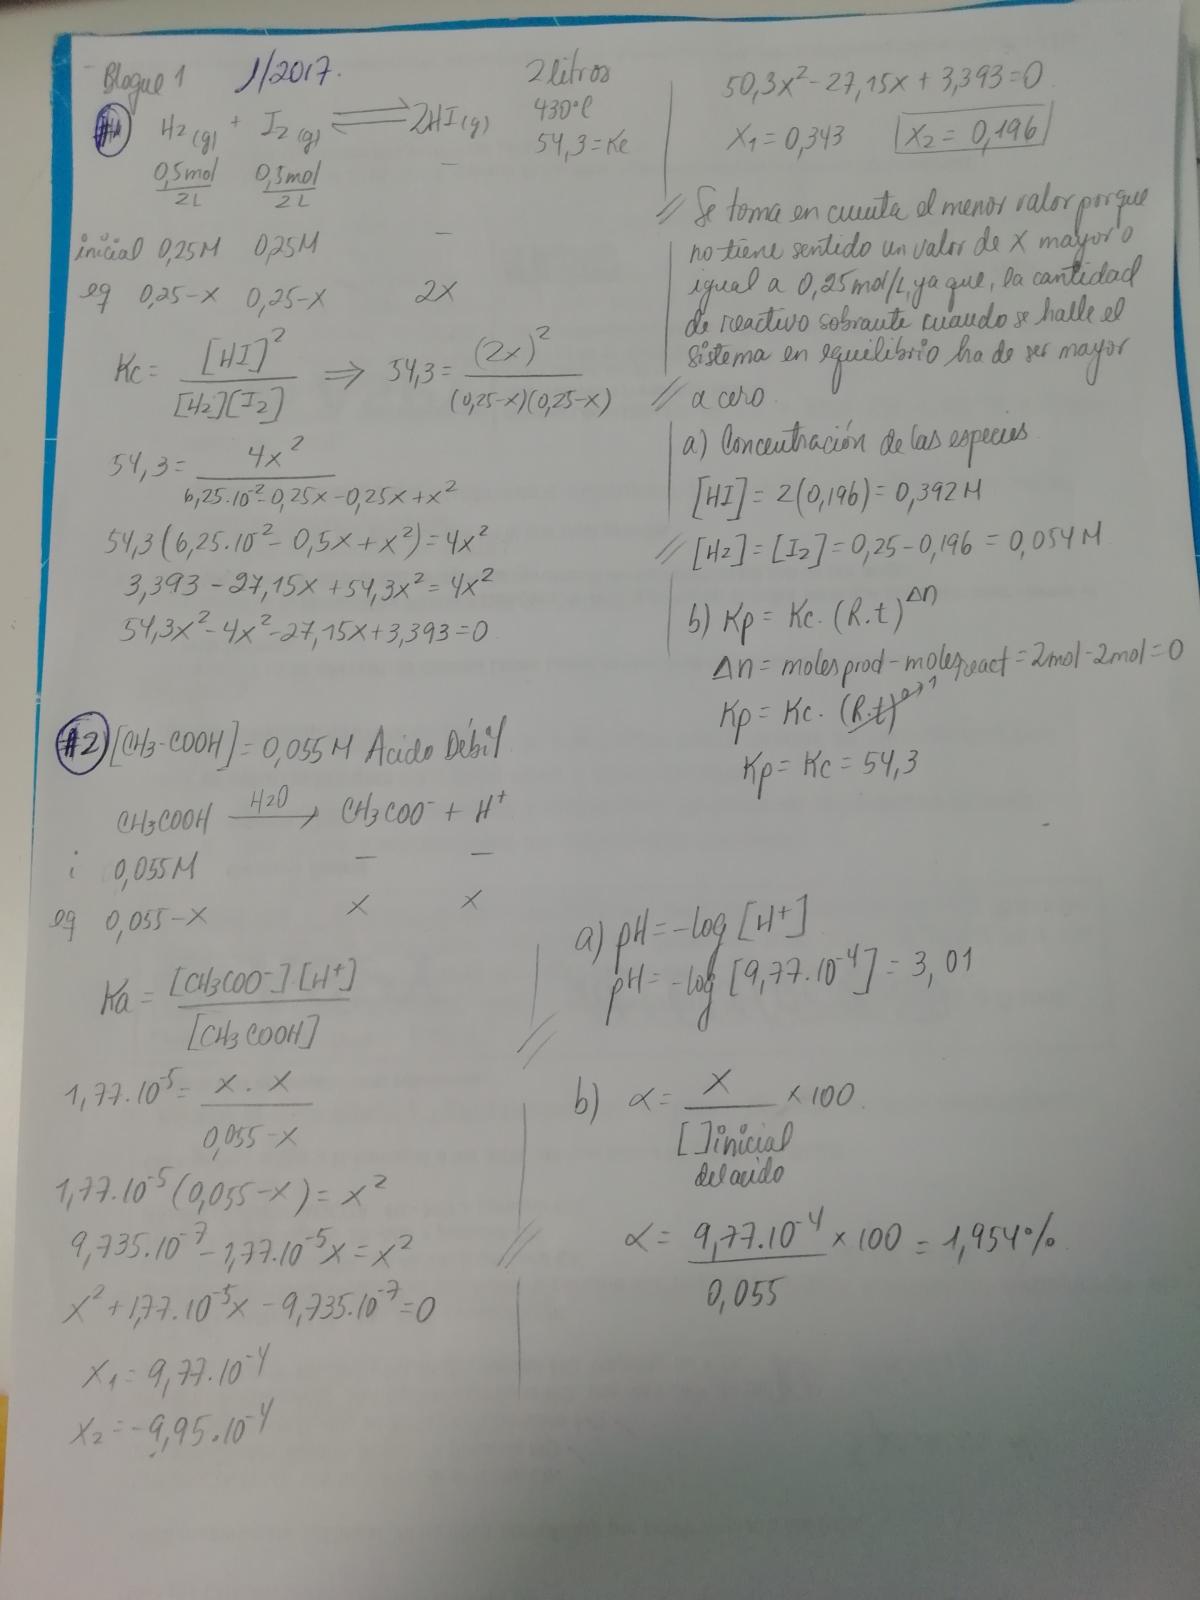 Bloque 1 1/2017.
#1 H2(g) + I2(g) ⇌ 2HI(g)
2 litros
430°C
54,3 = Kc
0,5mol/2L 0,5mol/2L —
inicial 0,25M 0,25M —
eq 0,25-x 0,25-x 2x
Kc = [HI]²/[H2][I2] ⇒ 54,3 = (2x)²/(0,25-x)(0,25-x)
54,3 = 4x²/6,25·10⁻²-0,25x-0,25x+x²
54,3(6,25·10⁻²-0,5x+x²) = 4x²
3,393-27,15x+54,3x² = 4x²
54,3x²-4x²-27,15x+3,393=0
50,3x²-27,15x+3,393=0
x1 = 0,343 x2 = 0,196
// Se toma en cuenta el menor valor porque
no tiene sentido un valor de x mayor o
igual a 0,25mol/L, ya que, la cantidad
de reactivo sobrante cuando se halle el
sistema en equilibrio ha de ser mayor
// a cero.
a) Concentración de las especies
[HI] = 2(0,196) = 0,392M
// [H2] = [I2] = 0,25-0,196 = 0,054M
b) Kp = Kc·(R.t)^Δn
Δn = moles prod - moles react = 2mol-2mol = 0
Kp = Kc·(R.t)⁰ → 1
Kp = Kc = 54,3
#2 [CH3-COOH] = 0,055M Acido Débil
CH3COOH —H2O→ CH3COO⁻ + H⁺
i 0,055M — —
eq 0,055-x x x
Ka = [CH3COO⁻]·[H⁺]/[CH3COOH]
1,77·10⁻⁵ = x·x/0,055-x
1,77·10⁻⁵(0,055-x) = x²
9,735·10⁻⁷-1,77·10⁻⁵x = x²
x²+1,77·10⁻⁵x-9,735·10⁻⁷=0
x1 = 9,77·10⁻⁴
x2 = -9,95·10⁻⁴
a) pH = -log[H⁺]
pH = -log[9,77·10⁻⁴] = 3,01
//
b) α = x/[ ]inicial del acido × 100
//
α = 9,77·10⁻⁴/0,055 × 100 = 1,954%